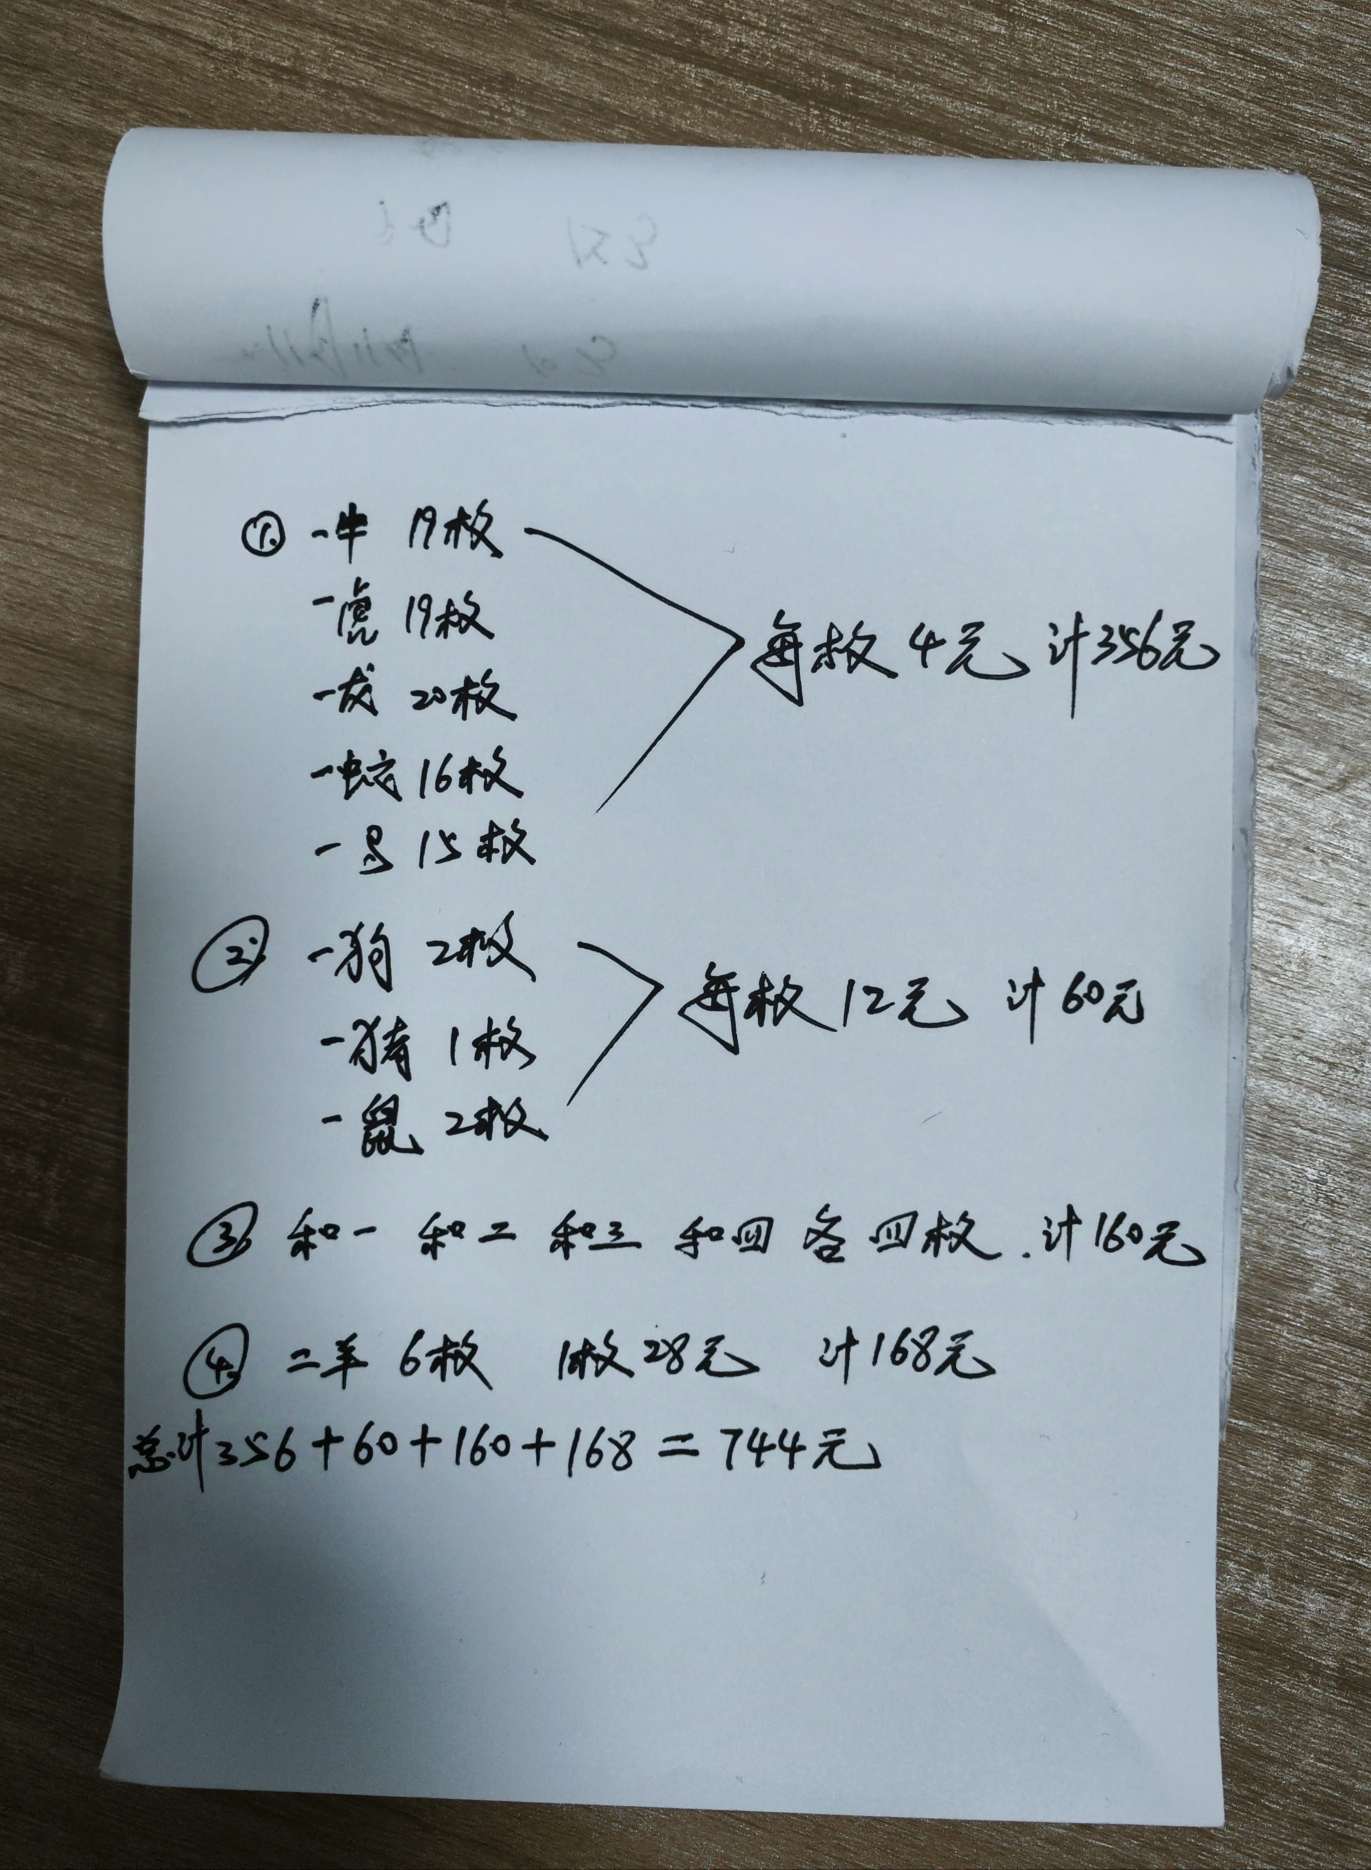 ① 一牛 19枚
一虎 19枚
一龙 20枚
一蛇 16枚
一马 15枚
每枚4元 计356元
② 一狗 2枚
一猪 1枚
一鼠 2枚
每枚12元 计60元
③ 和一 和二 和三 和四 各四枚.计160元
④ 二羊 6枚 1枚28元 计168元
总计356+60+160+168=744元